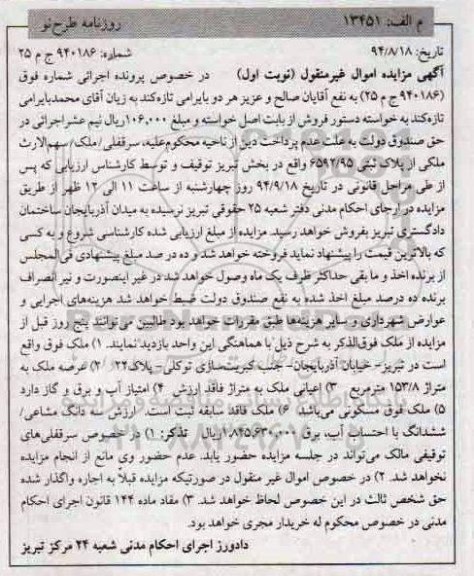 م الف: ۱۳۴۵۱ روزنامه طرح‌نو
تاریخ: ۹۴/۸/۱۸ شماره: ۹۴۰۱۸۶ ج م ۲۵
آگهی مزایده اموال غیرمنقول (نوبت اول) در خصوص پرونده اجرائی شماره فوق
(۹۴۰۱۸۶ ج م ۲۵) به نفع آقایان صالح و عزیز هر دو بایرامی تازه‌کند به زیان آقای محمدبایرامی
تازه‌کند به خواسته دستور فروش از بابت اصل خواسته و مبلغ ۱۰۶,۰۰۰ریال نیم عشراجرائی در
حق صندوق دولت به علت عدم پرداخت دین از ناحیه محکوم‌علیه، سرقفلی/ملک/سهم‌الارث
ملکی از پلاک ثبتی ۶۵۹۲/۹۵ واقع در بخش تبریز توقیف و توسط کارشناس ارزیابی که پس
از طی مراحل قانونی در تاریخ ۹۴/۹/۱۸ روز چهارشنبه از ساعت ۱۱ الی ۱۲ ظهر از طریق
مزایده در اجرای احکام مدنی دفتر شعبه ۲۵ حقوقی تبریز نرسیده به میدان آذربایجان ساختمان
دادگستری تبریز بفروش خواهد رسید. مزایده از مبلغ ارزیابی شده کارشناسی شروع و به کسی
که بالاترین قیمت را پیشنهاد نماید فروخته خواهد شد و ده در صد مبلغ پیشنهادی فی‌المجلس
از برنده اخذ و ما بقی حداکثر ظرف یک ماه وصول خواهد شد در غیر اینصورت و نیز انصراف
برنده ده درصد مبلغ اخذ شده به نفع صندوق دولت ضبط خواهد شد هزینه‌های اجرایی و
عوارض شهرداری و سایر هزینه‌ها طبق مقررات خواهد بود طالبین می‌توانند پنج روز قبل از
مزایده از ملک فوق‌الذکر به شرح ذیل با هماهنگی این واحد بازدید نمایند. ۱) ملک فوق واقع
است در تبریز- خیابان آذربایجان- جنب کبریت‌سازی توکلی- پلاک۲۲ ۲) عرصه ملک به
متراژ ۱۵۳/۸ مترمربع ۳) اعیانی ملک به متراژ فاقد ارزش ۴) امتیاز آب و برق و گاز دارد
۵) ملک فوق مسکونی می‌باشد ۶) ملک فاقد سابقه ثبت است. ارزش سه دانگ مشاعی/
ششدانگ با احتساب آب، برق ۱,۸۴۵,۶۳۰,۰۰۰ریال تذکر: ۱) در خصوص سرقفلی‌های
توقیفی مالک می‌تواند در جلسه مزایده حضور یابد. عدم حضور وی مانع از انجام مزایده
نخواهد شد. ۲) در خصوص اموال غیر منقول در صورتیکه مزایده قبلاً به اجاره واگذار شده
حق شخص ثالث در این خصوص لحاظ خواهد شد. ۳) مفاد ماده ۱۴۴ قانون اجرای احکام
مدنی در خصوص محکوم له خریدار مجری خواهد بود.
دادورز اجرای احکام مدنی شعبه ۲۴ مرکز تبریز